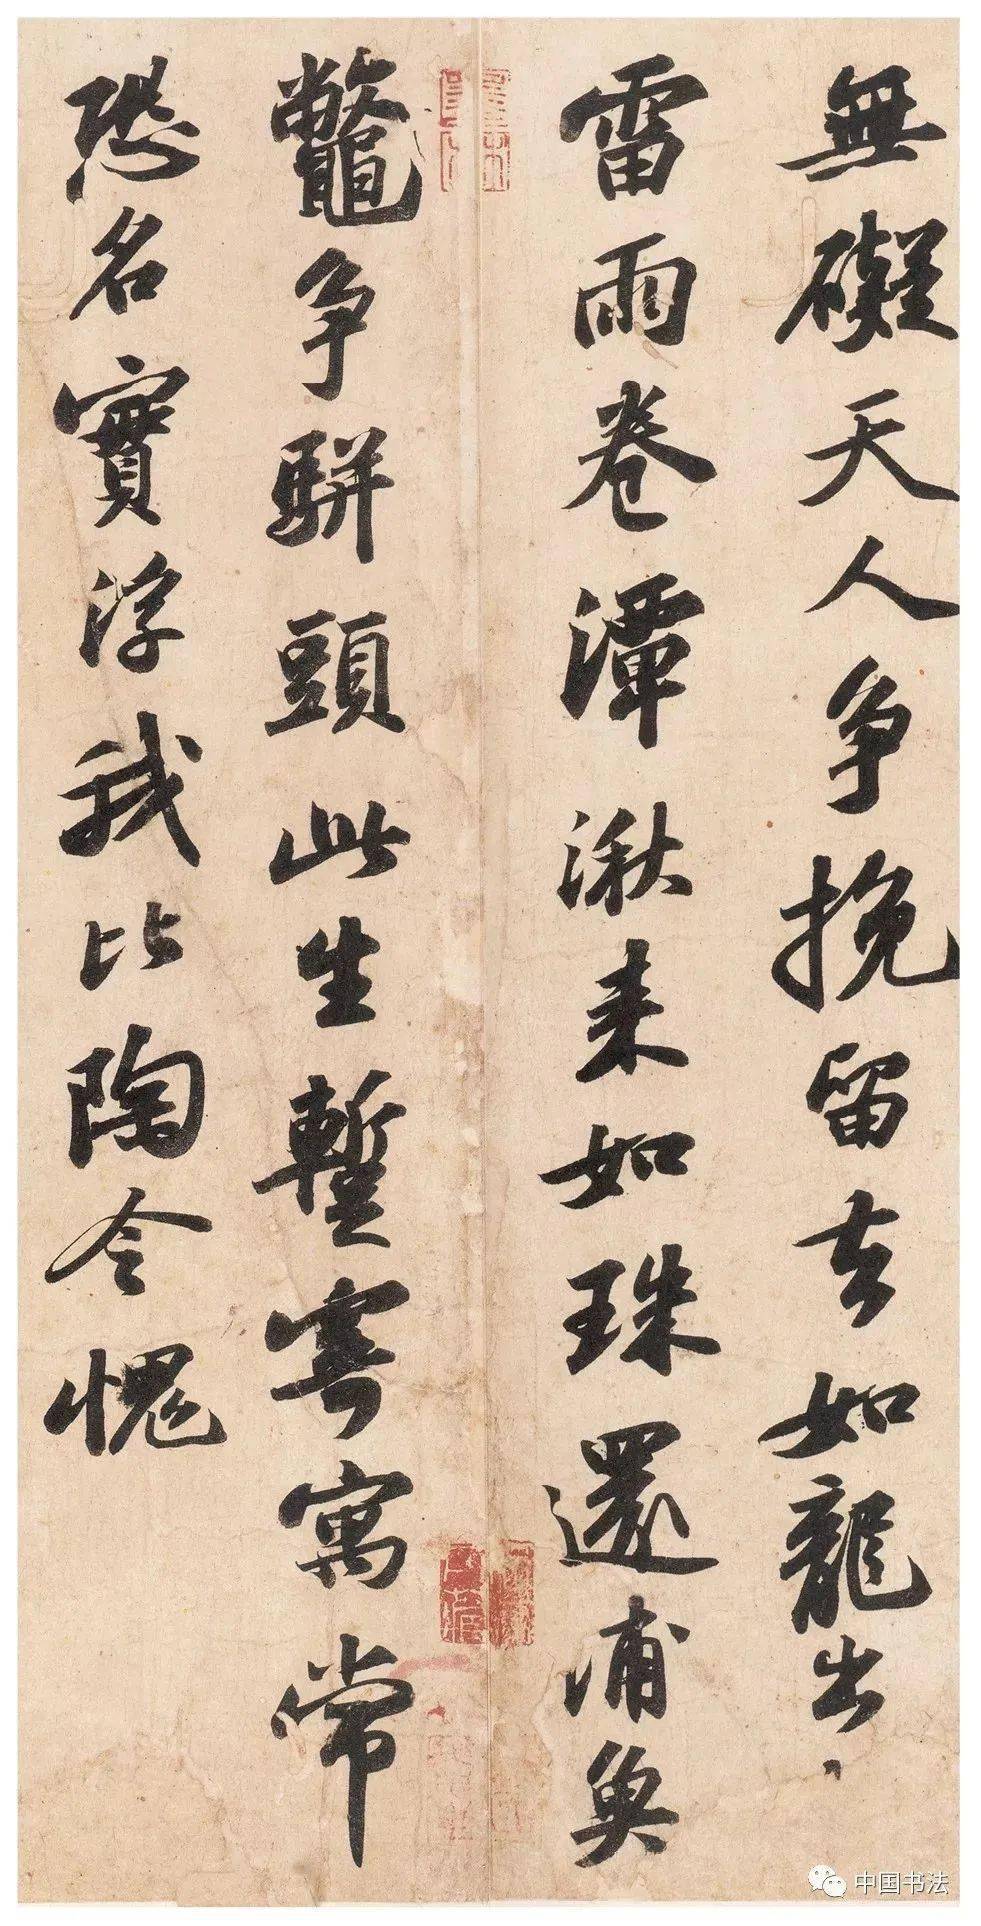 無礙天人争挽留去如龍出
雷雨卷潭湫来如珠還浦魚
鼈争駢頭此生暫寄寓常
恐名實浮我比陶令愧
中国书法